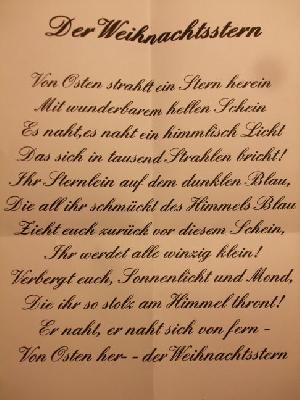 Der Weihnachtsstern
Von Osten strahlt ein Stern herein
Mit wunderbarem hellen Schein
Es naht, es naht ein himmlisch Licht
Das sich in tausend Strahlen bricht!
Ihr Sternlein auf dem dunklen Blau,
Die all ihr schmückt des Himmels Blau
Zieht euch zurück vor diesem Schein,
Ihr werdet alle winzig klein!
Verbergt euch, Sonnenlicht und Mond,
Die ihr so stolz am Himmel thront!
Er naht, er naht sich von fern -
Von Osten her- - der Weihnachtsstern